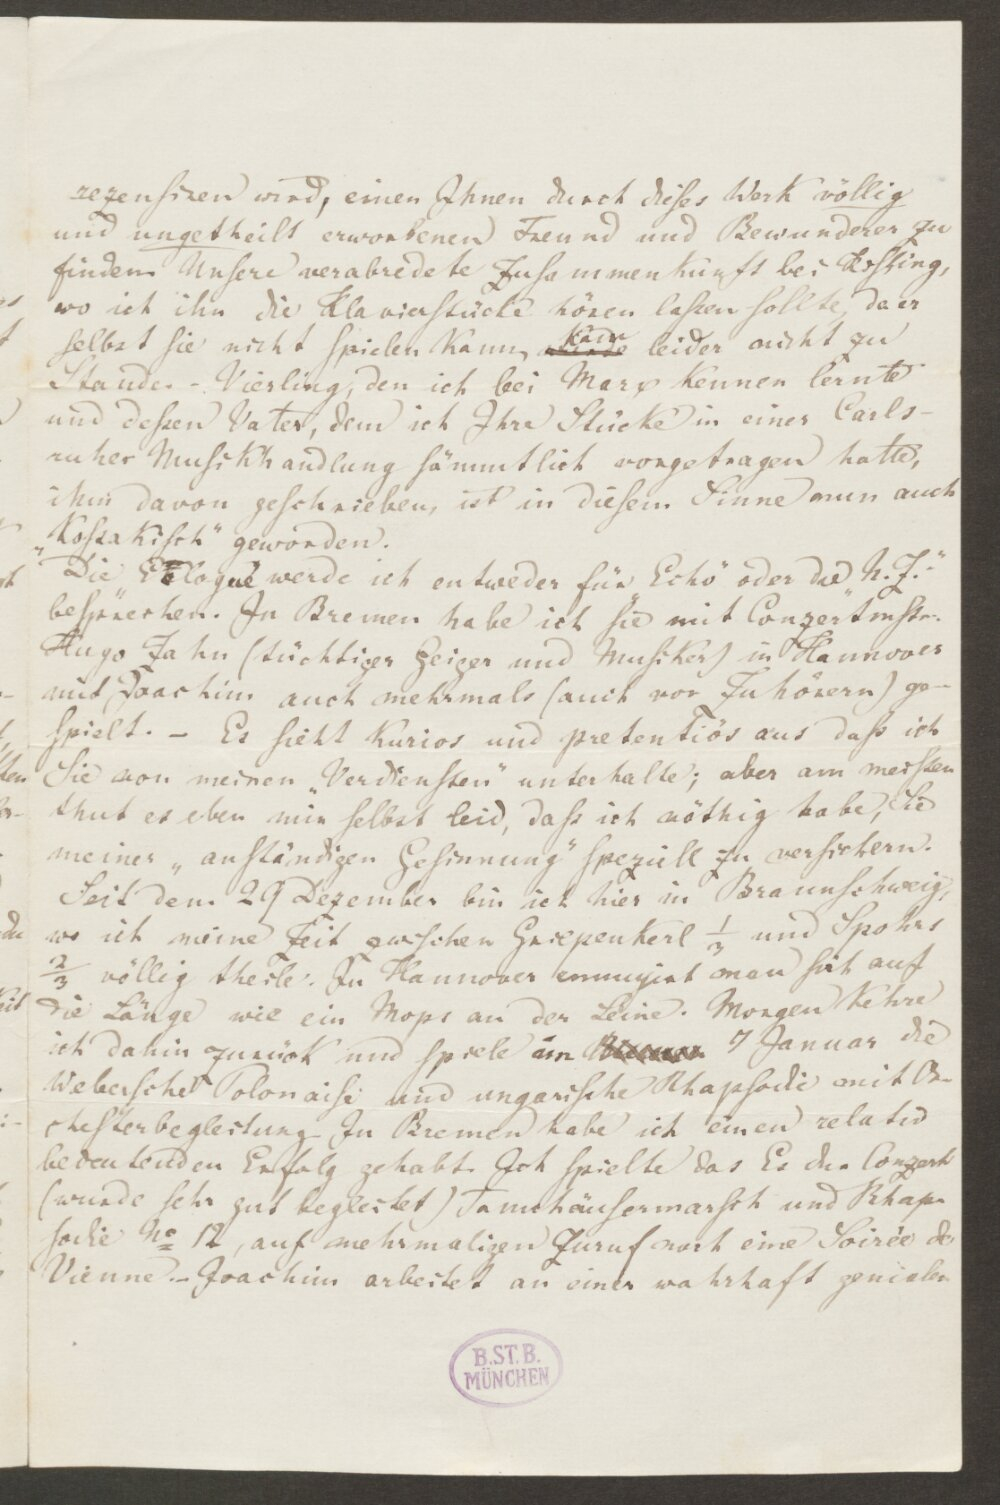 rezensiren wird, einen Ihnen durch dieses Werk völlig
und ungetheilt erworbenen Freund und Bewunderer zu
finden. Unsere verabredete Zusammenkunft bei Kossing,
wo ich ihn die Klavierstücke hören laßen sollte, da er
selbst sie nicht spielen kann, kam leider nicht zu
Stande. - Vierling, den ich bei Marx kennen lernte
und deßen Vater, dem ich Ihre Stücke in einer Carls-
ruher Musikhandlung sämmtlich vorgetragen hatte,
ihm davon geschrieben, ist in diesem Sinne nun auch
„Kossakisch" geworden.
Die Ekloge werde ich entweder für „Echo" oder die „N. Z."
besprechen. In Bremen habe ich sie mit Conzertmstr.
Hugo Zahn (tüchtiger Geiger und Musiker) in Hannover
mit Joachim auch mehrmals (auch vor Zuhörern) ge-
spielt. - Es sieht kurios und pretentiös aus daß ich
Sie von meinen „Verdiensten" unterhalte; aber am meisten
thut es eben mir selbst leid, daß ich nöthig habe, Sie
meiner „anständigen Gesinnung" speziell zu versichern.
Seit dem 29 Dezember bin ich hier in Braunschweig,
wo ich meine Zeit zwischen Griepenkerl 1/3 und Spohrs
2/3 völlig theile. In Hannover ennuyirt man sich auf
die Länge wie ein Mops an der Leine. Morgen kehre
ich dahin zurück und spiele am 7 Januar die
Webersche Polonaise und ungarische Rhapsodie mit Or-
chesterbegleitung. In Bremen habe ich einen relativ
bedeutenden Erfolg gehabt. Ich spielte das Es dur Conzert
(wurde sehr gut begleitet) Tannhäusermarsch und Rhap-
sodie No 12, auf mehrmaligen Zuruf noch eine Soirée de
Vienne. - Joachim arbeitet an einer wahrhaft genialen
B.ST.B.
MÜNCHEN